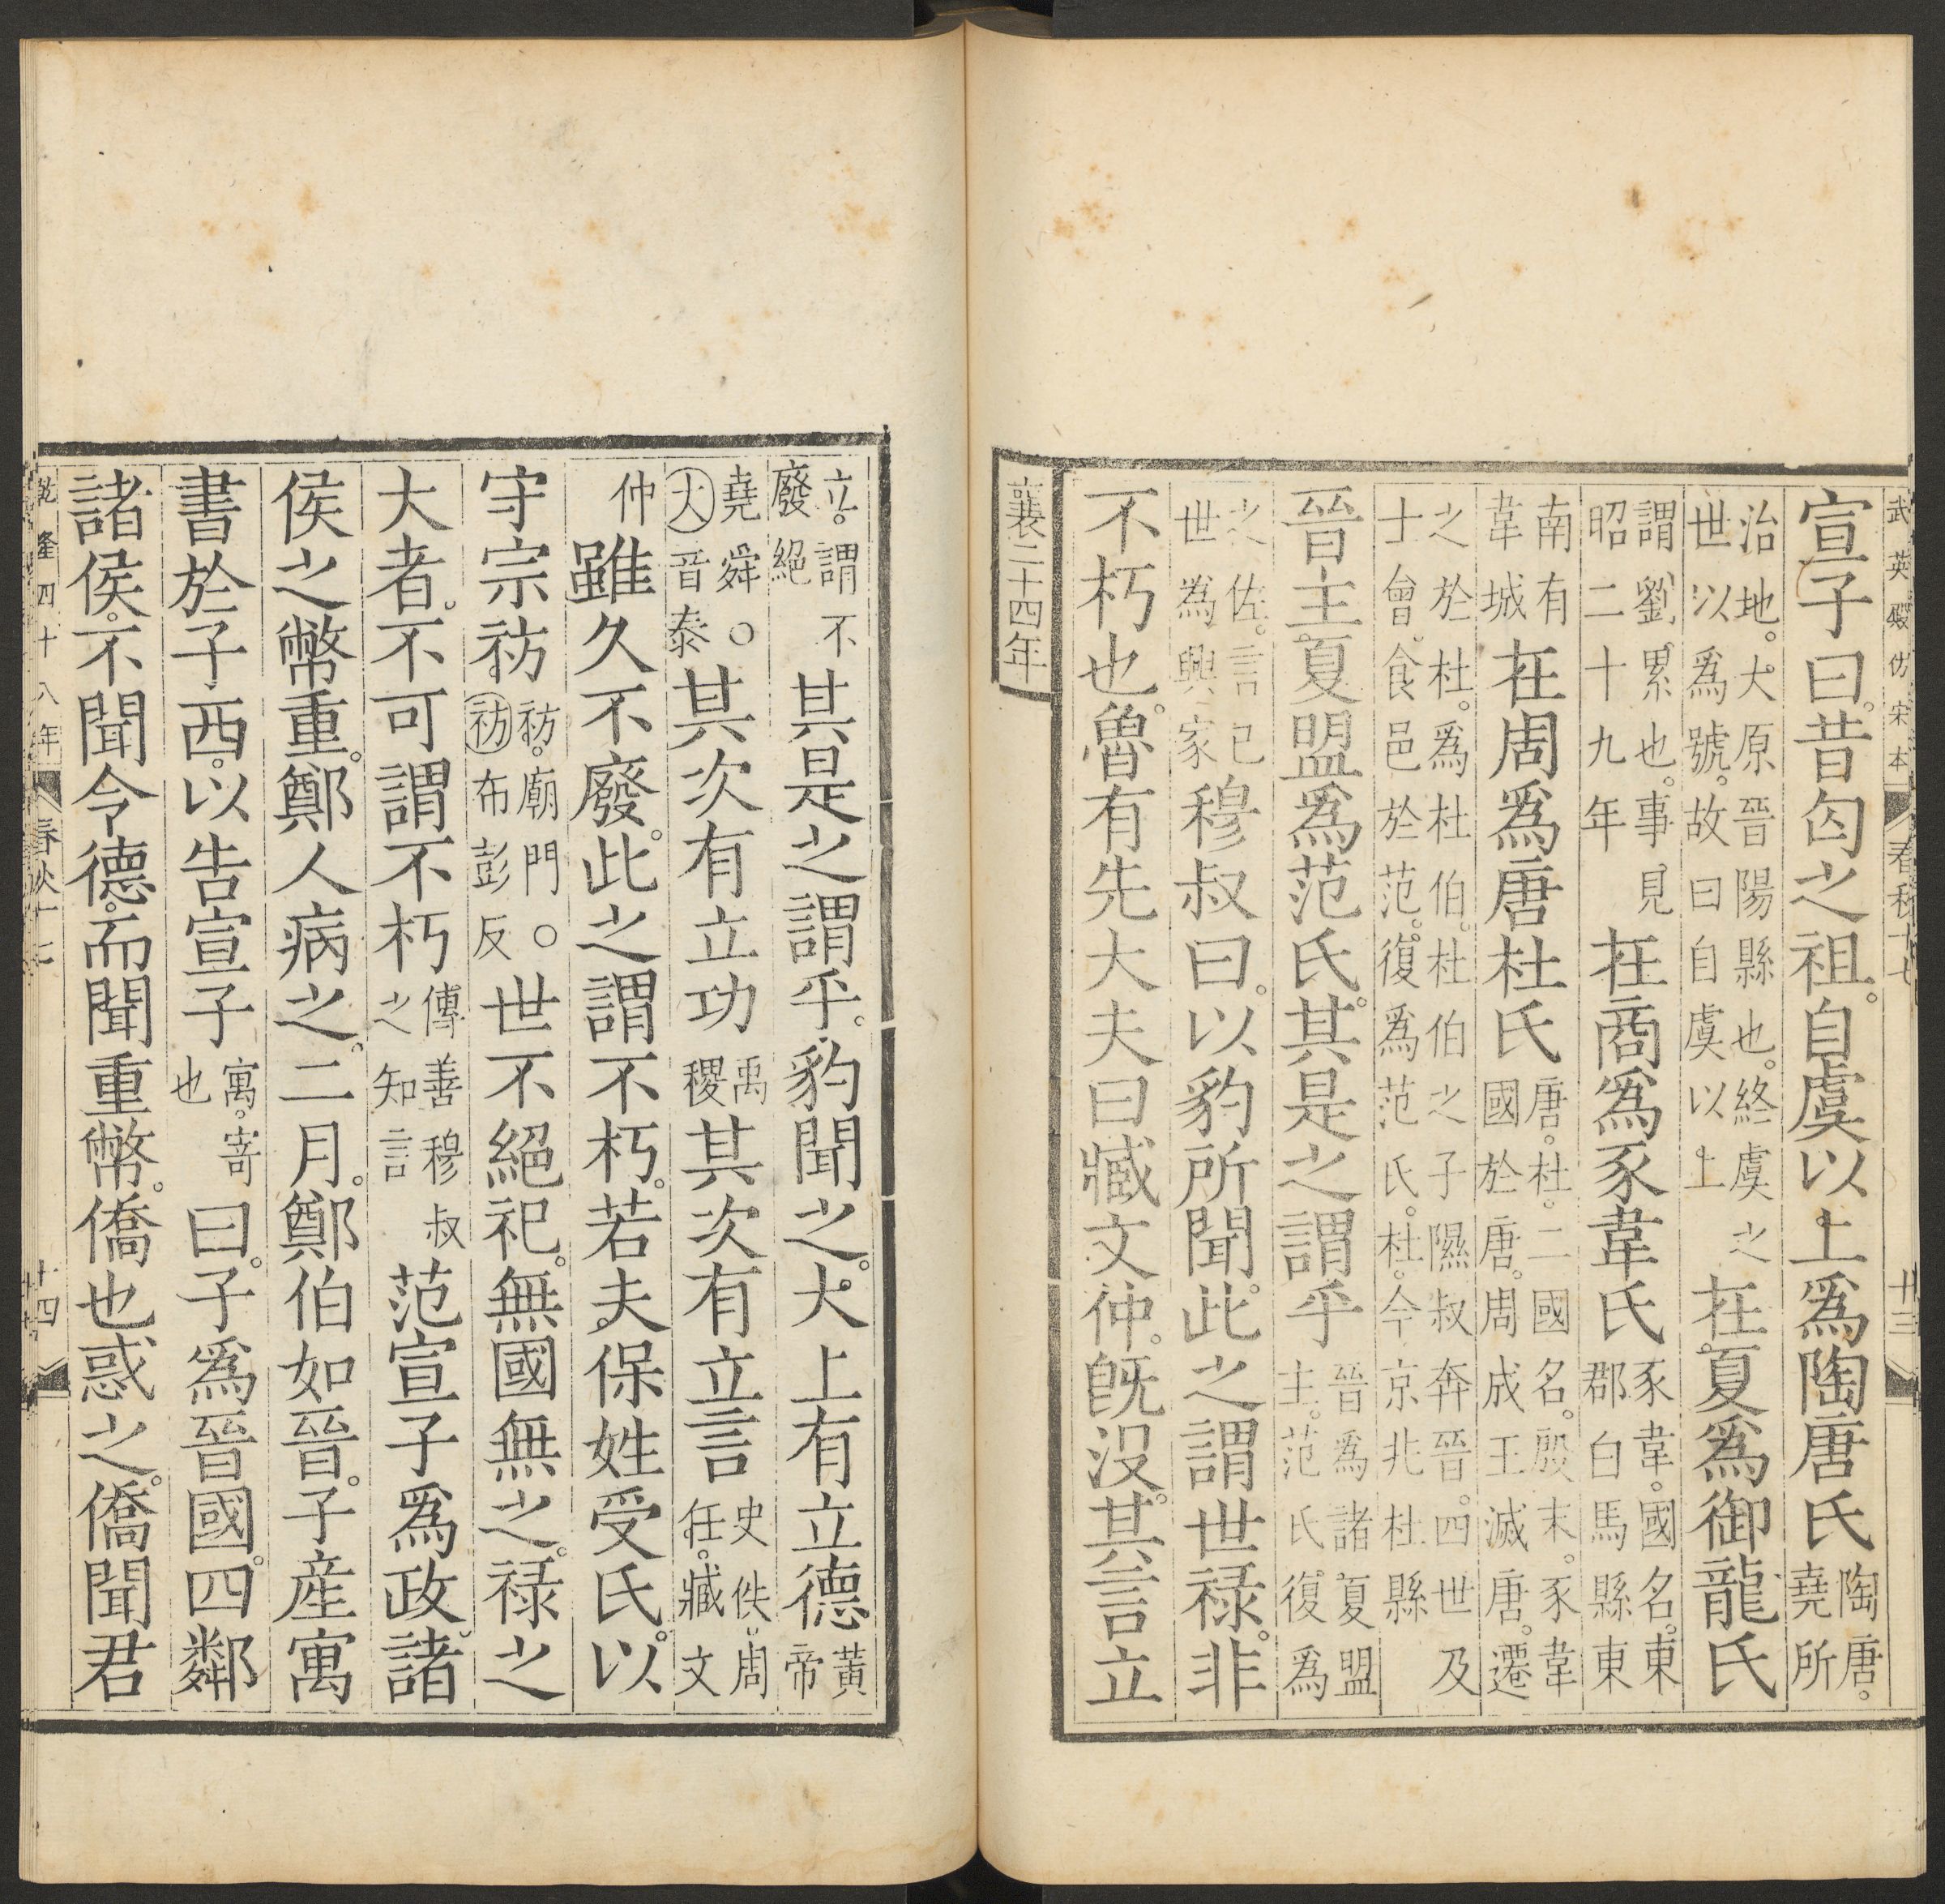 武英殿仿宋本 春秋十七 十三
宣子曰。昔匄之祖。自虞以上爲陶唐氏陶唐。堯所
治地。大原晉陽縣也。終虞之世以爲號。故曰自虞以上在夏爲御龍氏
謂劉累也。事見昭二十九年在商爲豕韋氏豕韋。國名。東郡白馬縣東
南有韋城在周爲唐杜氏唐。杜。二國名。殷末。豕韋國於唐。周成王滅唐。遷
之於杜。爲杜伯。杜伯之子隰叔奔晉。四世及士會。食邑於范。復爲范氏。杜。今京兆杜縣
晉主夏盟爲范氏。其是之謂乎晉爲諸夏盟主。范氏復爲
之佐。言己世爲興家穆叔曰。以豹所聞。此之謂世祿。非
不朽也。魯有先大夫曰臧文仲。旣沒。其言立
襄二十四年
立。謂不廢絕其是之謂乎。豹聞之。大上有立德黃帝
堯舜〇大音泰其次有立功禹稷其次有立言史佚。周任。臧文
仲雖久不廢。此之謂不朽。若夫保姓受氏。以
守宗祊。祊。廟門〇祊布彭反世不絕祀。無國無之。祿之
大者。不可謂不朽傳善穆叔之知言范宣子爲政。諸
侯之幣重。鄭人病之。二月。鄭伯如晉。子產寓
書於子西。以告宣子寓。寄也曰。子爲晉國。四鄰
諸侯。不聞令德。而聞重幣。僑也惑之。僑聞君
乾隆四十八年 春秋十七 十四